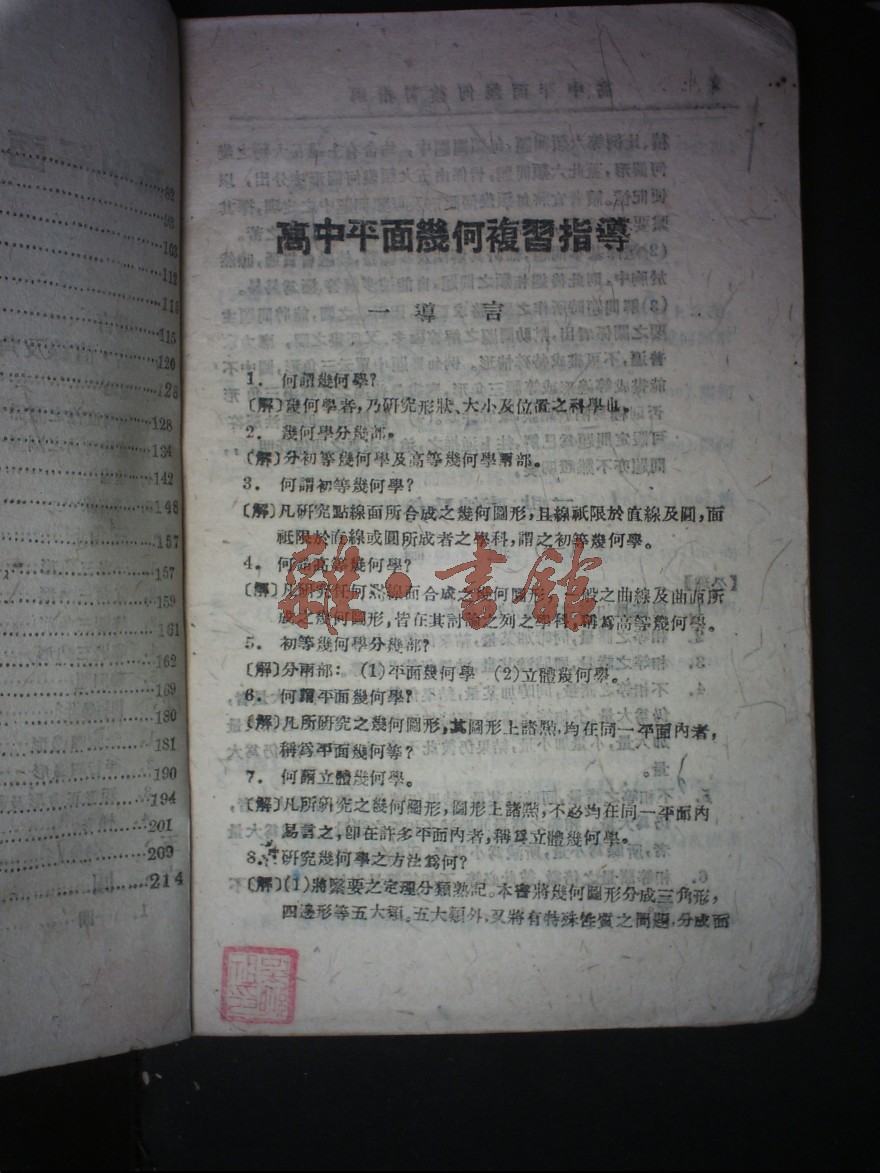 82
98
103
112
114
115
120
128
128
134
142
148
157
157
159
161
162
169
180
181
190
194
201
209
214
高中平面幾何複習指導
一 導 言
1. 何謂幾何學?
〔解〕幾何學者,乃研究形狀、大小及位置之科學也。
2. 幾何學分幾部。
〔解〕分初等幾何學及高等幾何學兩部。
3. 何謂初等幾何學?
〔解〕凡研究點線面所合成之幾何圖形,且線祇限於直線及圓,面
祇限於直線或圓所成者之學科,謂之初等幾何學。
4. 何謂高等幾何學?
〔解〕凡研究任何點線面合成之幾何圖形,一般之曲線及曲面所
成之幾何圖形,皆在其討論之列之學科,稱爲高等幾何學。
5. 初等幾何學分幾部?
〔解〕分兩部: (1)平面幾何學 (2)立體幾何學。
6. 何謂平面幾何學?
〔解〕凡所研究之幾何圖形,其圖形上諸點,均在同一平面內者,
稱爲平面幾何等?
7. 何謂立體幾何學。
〔解〕凡所研究之幾何圖形,圖形上諸點,不必均在同一平面內
易言之,卽在許多平面內者,稱爲立體幾何學。
8. 研究幾何學之方法爲何?
〔解〕(1)將緊要之定理分類熟記。本書將幾何圖形分成三角形,
四邊形等五大類。五大類外,又將有特殊性質之問題,分成面
雜·書館